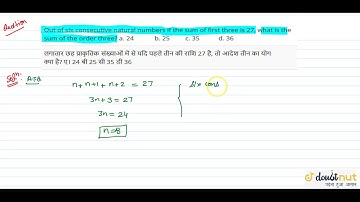 Question
Out of six consecutive natural numbers if the sum of first three is 27, what is
the sum of the order three? a. 24 b. 25 c. 35 d. 36
लगातार छह प्राकृतिक संख्याओं में से यदि पहले तीन की राशि 27 है, तो आदेश तीन का योग
क्या है? ए। 24 बी 25 सी 35 डी 36
Solⁿ:
n + n+1 + n+2 = 27
3n+3 = 27
3n = 24
n=8
six cons
doubtnut